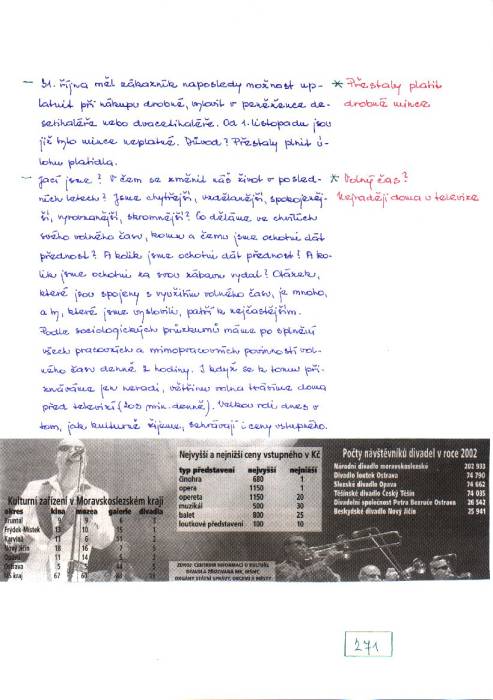 - 31. října měl zákazník naposledy možnost up-
latnit při nákupu drobné, vylovit v peněžence de-
setihaléře nebo dvacetihaléře. Od 1. listopadu jsou
již tyto mince neplatné. Důvod? Přestaly plnit ú-
lohu platidla.
* Přestaly platit
drobné mince
- Jací jsme? V čem se změnil náš život v posled-
ních letech? Jsme chytřejší, vzdělanější, spokojeněj-
ší, vyrovnanější, skromnější? Co děláme ve chvílích
svého volného času, komu a čemu jsme ochotni dát
přednost? A kolik jsme ochotni dát přednost? A ko-
lik jsme ochotni za svou zábavu vydat? Otázek,
které jsou spojeny s využitím volného času, je mnoho,
a ty, které jsme vyslovili, patří k nejčastějším.
Podle sociologických průzkumů máme po splnění
všech pracovních a mimopracovních povinností vol-
ného času denně 2 hodiny. I když se k tomu při-
znáváme jen neradi, většinu volna trávíme doma
před televizí (203 min. denně). Velkou roli dnes v
tom, jak kulturně žijeme, sehrávají i ceny vstupného.
* Volný čas?
Nejraději doma u televize
Kulturní zařízení v Moravskoslezském kraji
okres kina muzea galerie divadla
Bruntál 9 9 6
Frýdek-Místek 13 10 15
Karviná 11 6
Nový Jičín 18 16 7
Opava 11 14 5
Ostrava 5 5 44
MS kraj 67 60
Nejvyšší a nejnižší ceny vstupného v Kč
typ představení nejvyšší nejnižší
činohra 680 1
opera 1150 1
opereta 1150 20
muzikál 500 30
balet 800 25
loutkové představení 100 10
ZDROJ: CENTRUM INFORMACÍ O KULTUŘE,
DIVADLA ZŘIZOVANÁ MK, MŠMT,
ORGÁNY STÁTNÍ SPRÁVY, OBCEMI A MĚSTY
Počty návštěvníků divadel v roce 2002
Národní divadlo moravskoslezské 202 933
Divadlo loutek Ostrava 74 790
Slezské divadlo Opava 74 662
Těšínské divadlo Český Těšín 74 035
Divadelní společnost Petra Bezruče Ostrava 26 542
Beskydské divadlo Nový Jičín 25 941
271